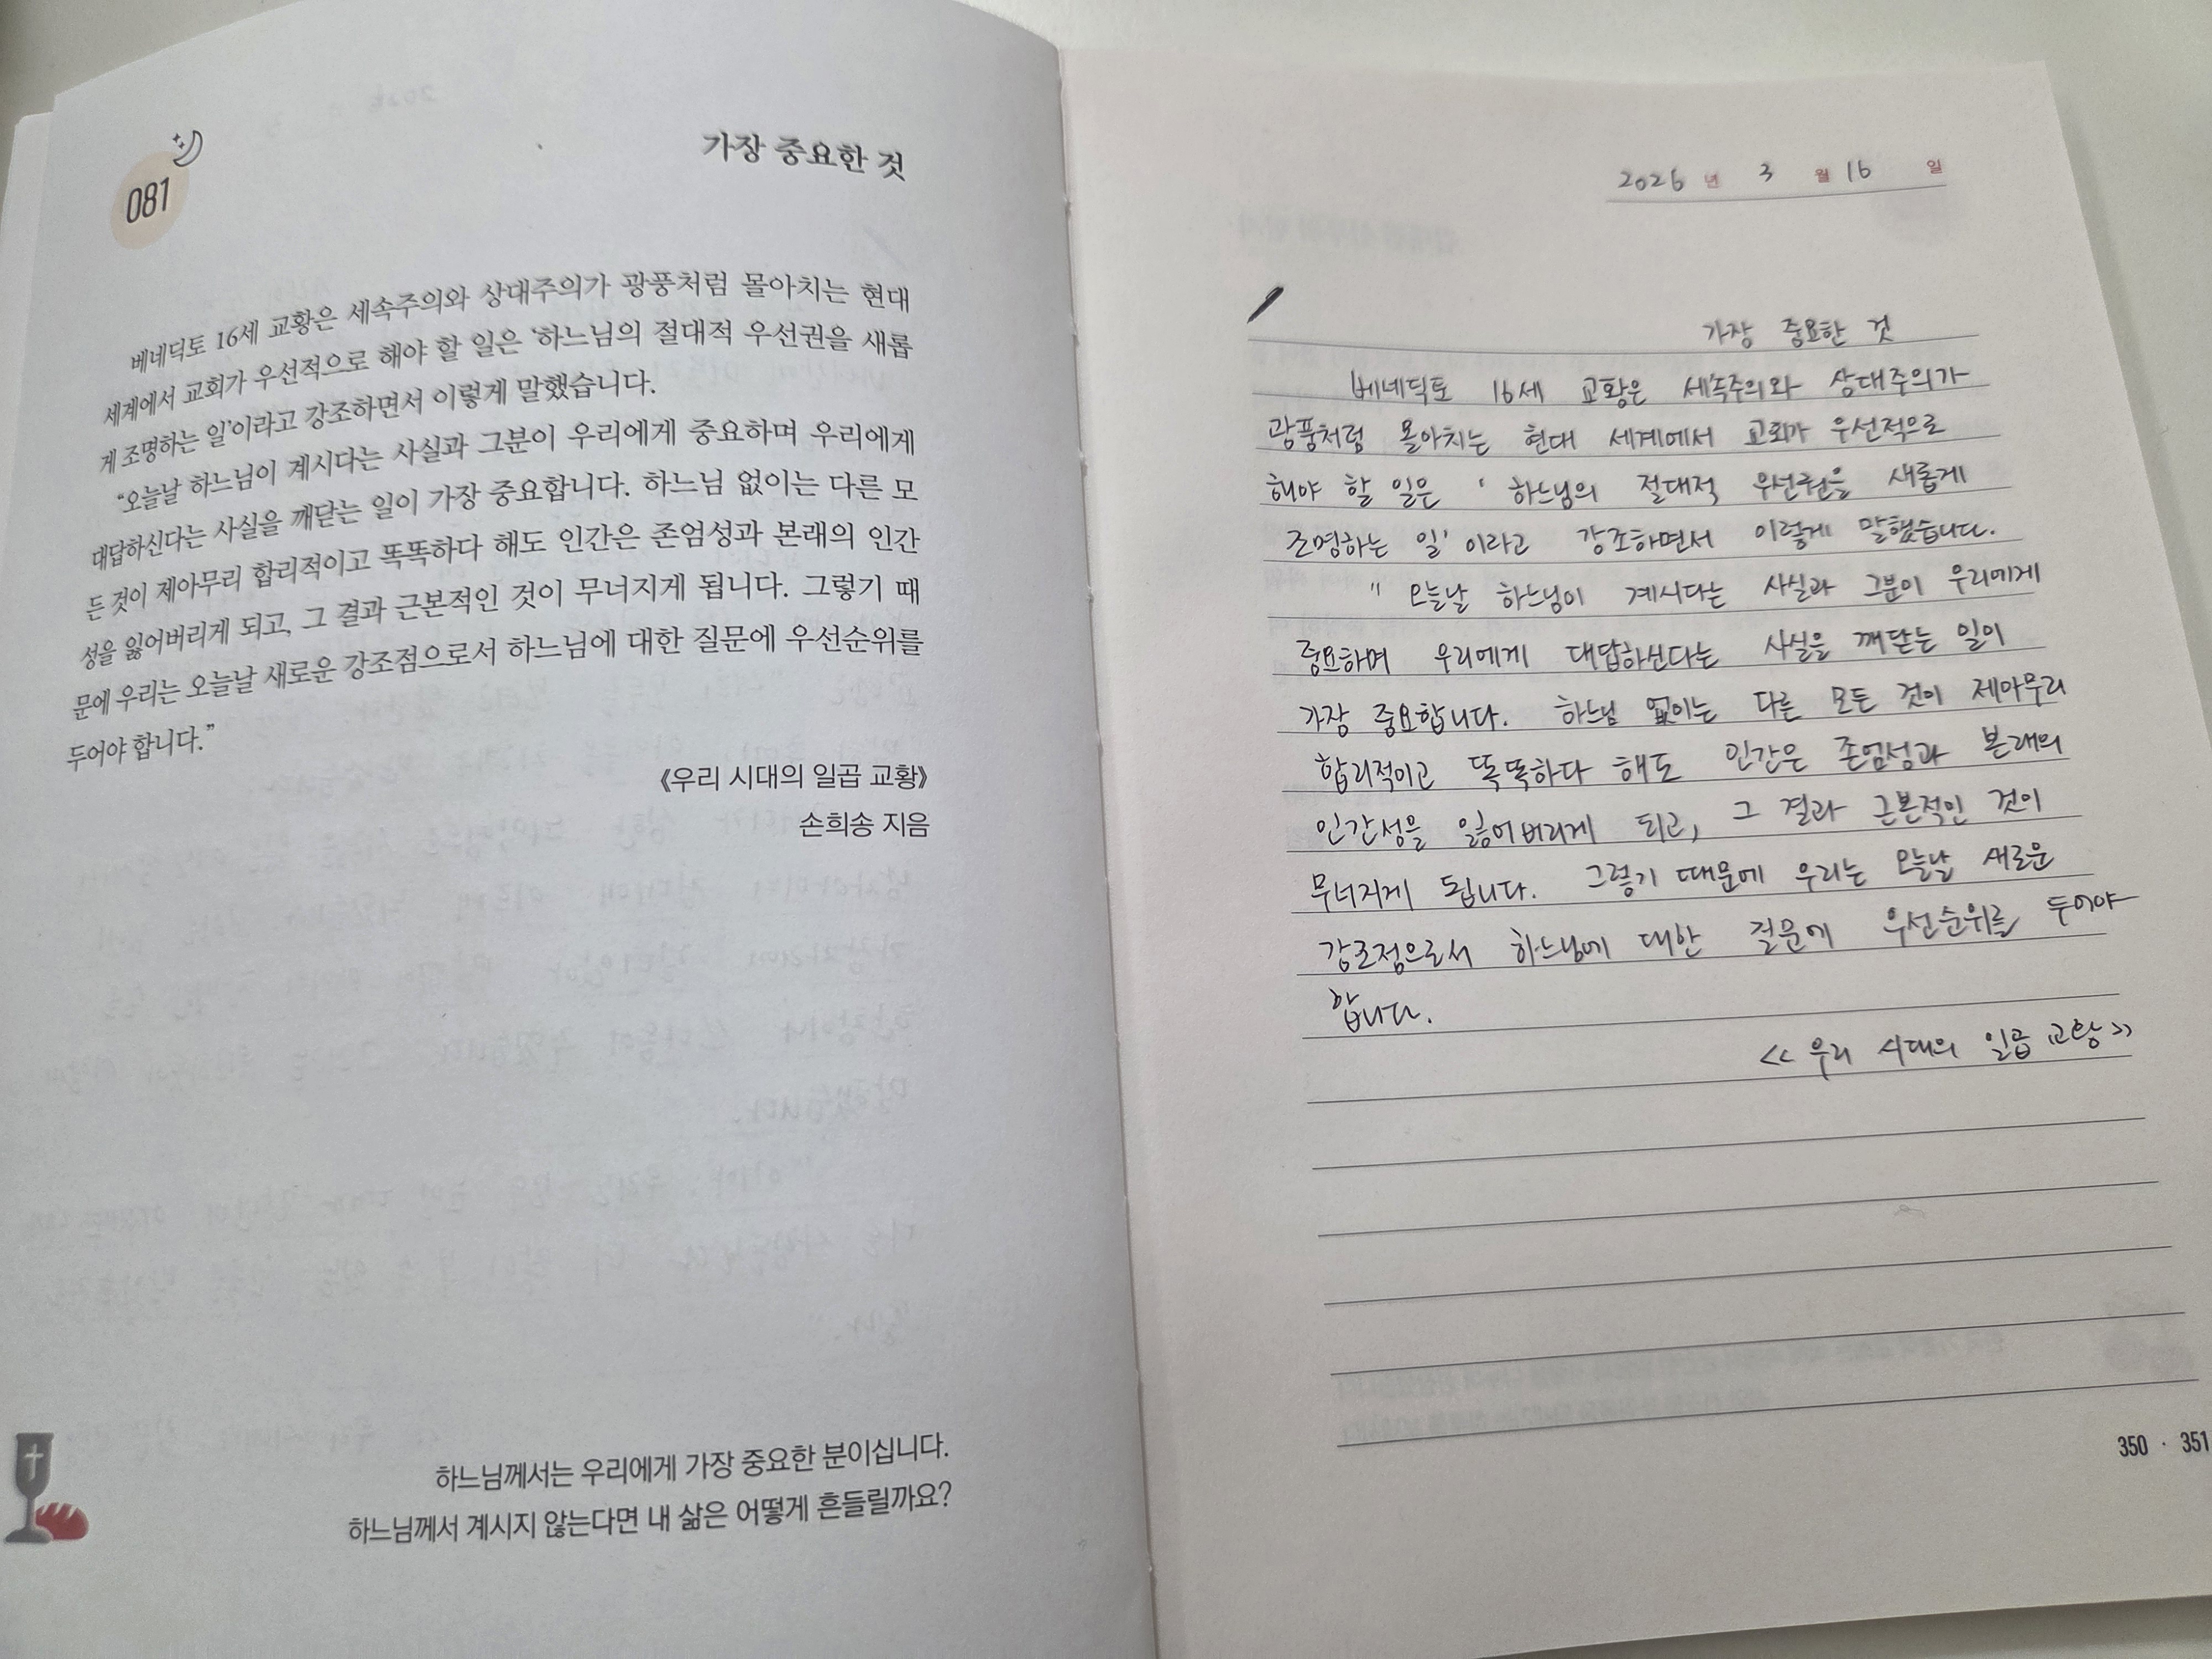 081
가장 중요한 것
베네딕토 16세 교황은 세속주의와 상대주의가 광풍처럼 몰아치는 현대
세계에서 교회가 우선적으로 해야 할 일은 '하느님의 절대적 우선권을 새롭
게 조명하는 일'이라고 강조하면서 이렇게 말했습니다.
"오늘날 하느님이 계시다는 사실과 그분이 우리에게 중요하며 우리에게
대답하신다는 사실을 깨닫는 일이 가장 중요합니다. 하느님 없이는 다른 모
든 것이 제아무리 합리적이고 똑똑하다 해도 인간은 존엄성과 본래의 인간
성을 잃어버리게 되고, 그 결과 근본적인 것이 무너지게 됩니다. 그렇기 때
문에 우리는 오늘날 새로운 강조점으로서 하느님에 대한 질문에 우선순위를
두어야 합니다."
《우리 시대의 일곱 교황》
손희송 지음
하느님께서는 우리에게 가장 중요한 분이십니다.
하느님께서 계시지 않는다면 내 삶은 어떻게 흔들릴까요?
2026 년 3 월 16 일
가장 중요한 것
베네딕토 16세 교황은 세속주의와 상대주의가
광풍처럼 몰아치는 현대 세계에서 교회가 우선적으로
해야 할 일은 ' 하느님의 절대적 우선권을 새롭게
조명하는 일' 이라고 강조하면서 이렇게 말했습니다.
" 오늘날 하느님이 계시다는 사실과 그분이 우리에게
중요하며 우리에게 대답하신다는 사실을 깨닫는 일이
가장 중요합니다. 하느님 없이는 다른 모든 것이 제아무리
합리적이고 똑똑하다 해도 인간은 존엄성과 본래의
인간성을 잃어버리게 되고, 그 결과 근본적인 것이
무너지게 됩니다. 그렇기 때문에 우리는 오늘날 새로운
강조점으로서 하느님에 대한 질문에 우선순위를 두어야
합니다.
<< 우리 시대의 일곱 교황 >>
350 · 351